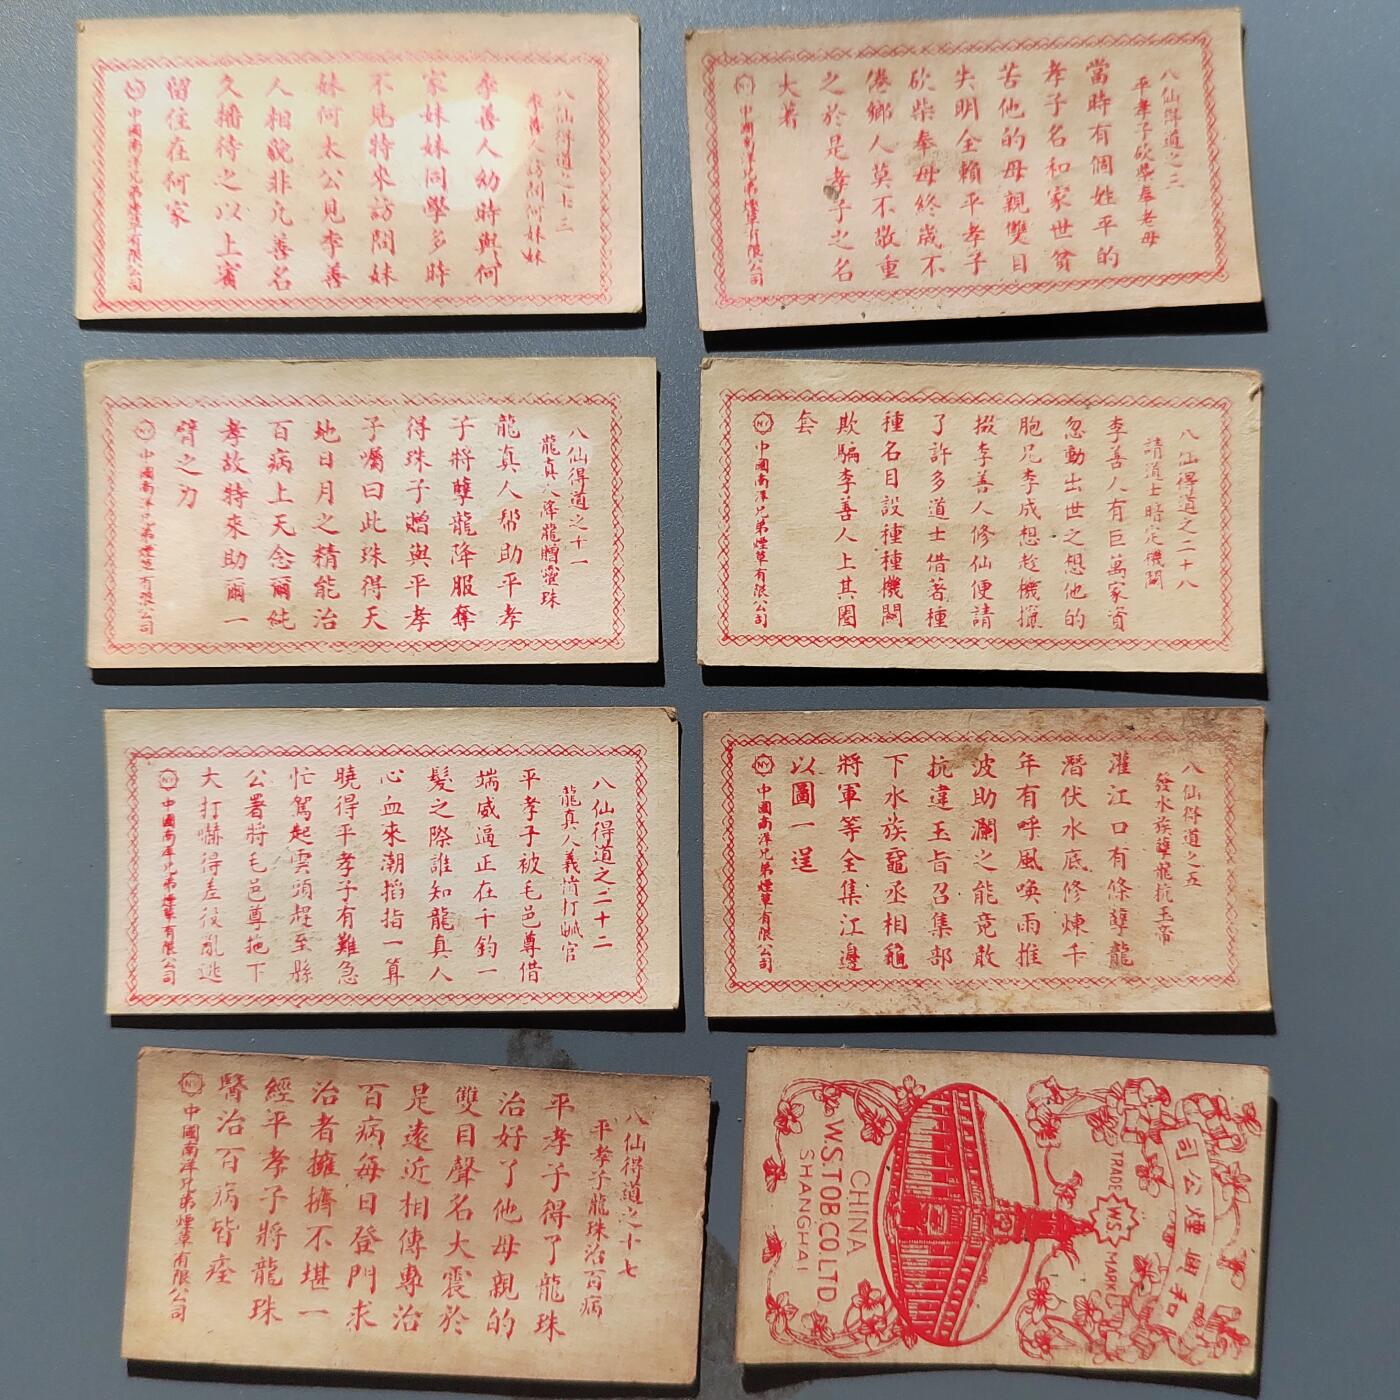 八仙得道之十三
李善人訪問何妹妹
李善人幼時與何
家妹妹同學多時
不見特來訪問妹
妹何太公見李善
人相貌非凢善名
久播待之以上賓
留住在何家
中國南洋兄弟煙草有限公司
八仙得道之三
平孝子砍柴奉老母
當時有個姓平的
孝子名和家世貧
苦他的母親雙目
失明全賴平孝子
砍柴奉母終歲不
倦鄉人莫不敬重
之於是孝子之名
大著
中國南洋兄弟煙草有限公司
八仙得道之十一
龍真人降龍贈靈珠
龍真人幣助平孝
子將孽龍降服奪
得珠子贈與平孝
子囑曰此珠得天
地日月之精能治
百病上天念爾純
孝故特來助爾一
臂之力
NY
中國南洋兄弟煙草有限公司
八仙得道之二十八
請道士暗定機關
李善人有巨萬家資
忽動出世之想他的
胞兄李成想趁機攛
掇李善人修仙便請
了許多道士借著種
種名目設種種機關
欺騙李善人上其圈
套
NY
中國南洋兄弟煙草有限公司
八仙得道之二十二
龍真人義憤打贓官
平孝子被毛邑尊借
端威逼正在千鈞一
髮之際誰知龍真人
心血來潮搯指一算
曉得平孝子有難急
忙駕起雲頭趕至縣
公署將毛邑尊拖下
大打嚇得差役亂逃
NY
中國南洋兄弟煙草有限公司
八仙得道之五
發水族孽龍抗玉帝
灌江口有條孽龍
潛伏水底修煉千
年有呼風喚雨推
波助瀾之能竟敢
抗違玉旨召集部
下水族黿丞相龜
將軍等全集江邊
以圖一逞
NY
中國南洋兄弟煙草有限公司
八仙得道之十七
平孝子龍珠治百病
平孝子得了龍珠
治好了他母親的
雙目聲名大震於
是遠近相傳專治
百病每日登門求
治者擁擠不堪一
經平孝子將龍珠
醫治百病皆痊
NY
中國南洋兄弟煙草有限公司
司公煙興和
TRADE WS MARK
CHINA
W.S.TOB.CO.LTD
SHANGHAI